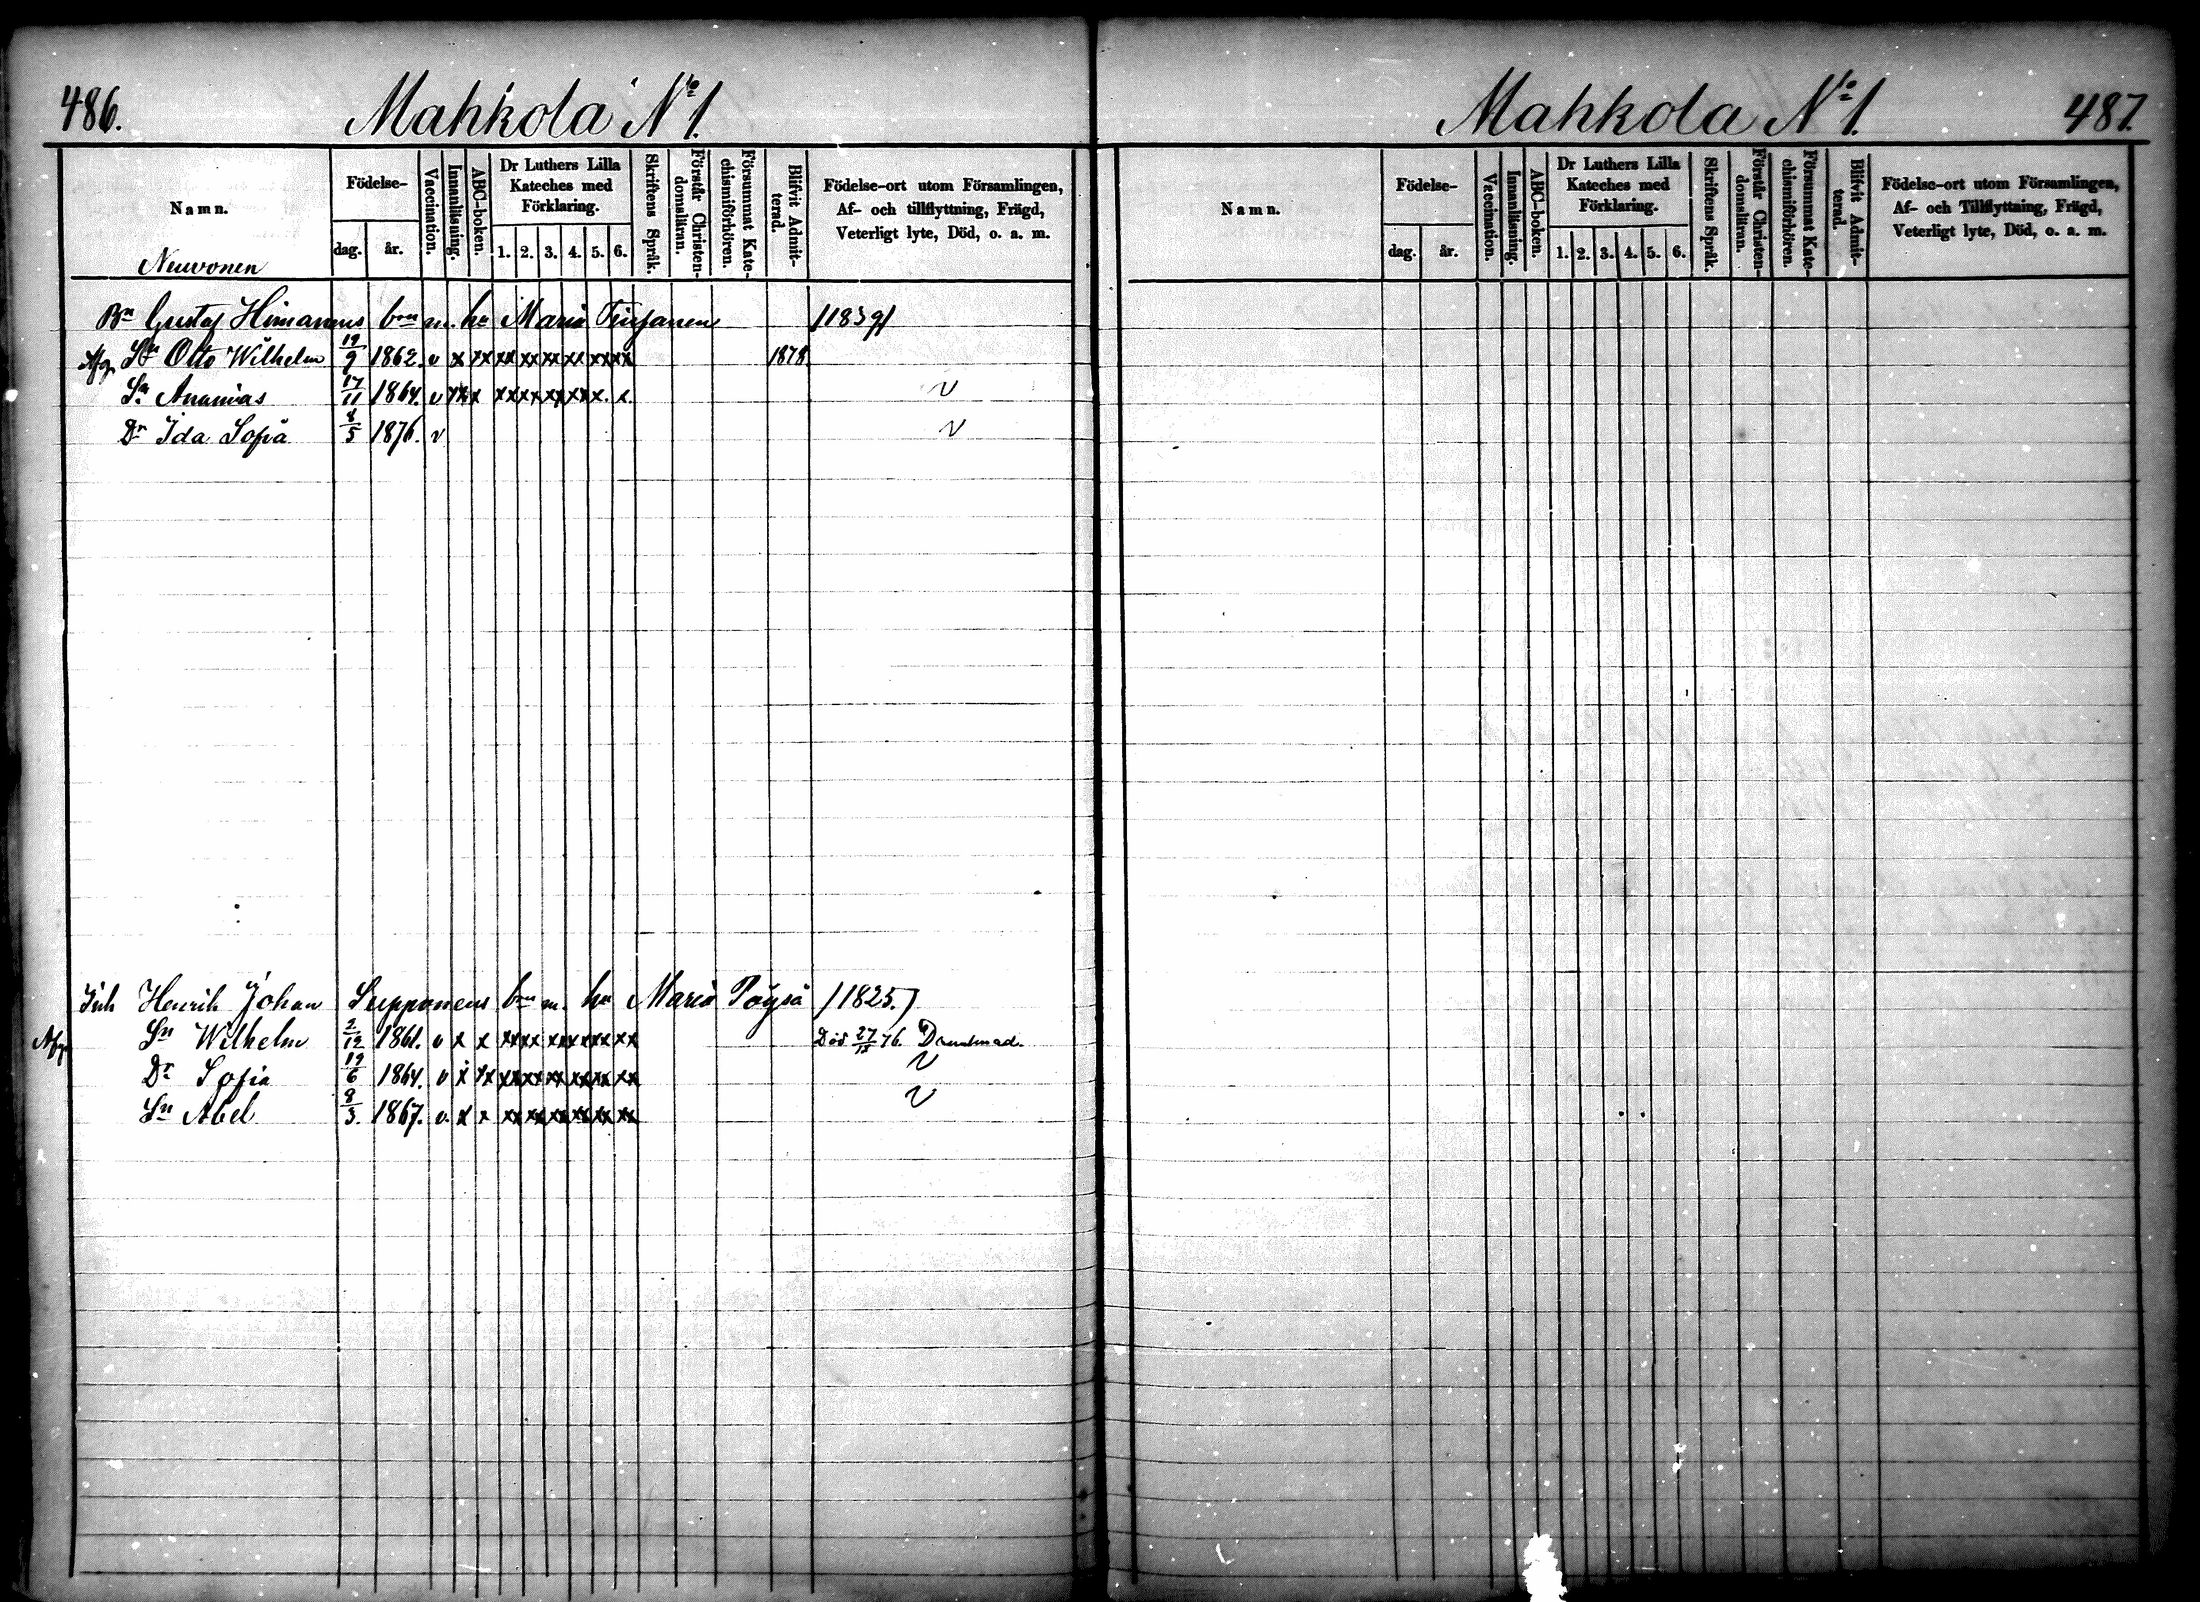 486. Mahkola No 1.
Namn.
Födelse-
dag. år.
Vaccination.
Innanläsning.
ABC-boken.
Dr Luthers Lilla
Kateches med
Förklaring.
1. 2. 3. 4. 5. 6.
Skriftens Språk.
Förstår Christen-
domsläran.
Försummat Kate-
chismiförhören.
Blifvit Admit-
terad.
Födelse-ort utom Församlingen,
Af- och tillflyttning, Frägd,
Veterligt lyte, Död, o. a. m.
Neuvonen
Bn Gustaf Himanens bn m. hu Maria /1839/
Afg. Sn Otto Wilhelm 19/9 1862. v x xx xx xx xx xx xx xx 1878.
Sn Ananias 17/11 1864. v xx x xx xx xx xx x. x. v
Dr Ida Sofia 8/5 1876. v v
Inh Henrik Johan Supponens bn m. hu Maria Pöysä /1825./
Afg. Sn Wilhelm 2/12 1861. v x x xx xx xx xx xx xx Död 27/12 76.
Dr Sofia 19/6 1864. v x xx xx xx xx xx xx xx v
Sn Abel 8/3. 1867. v. x x xx xx xx xx xx xx v
Mahkola No 1. 487.
Namn.
Födelse-
dag. år.
Vaccination.
Innanläsning.
ABC-boken.
Dr Luthers Lilla
Kateches med
Förklaring.
1. 2. 3. 4. 5. 6.
Skriftens Språk.
Förstår Christen-
domsläran.
Försummat Kate-
chismiförhören.
Blifvit Admit-
terad.
Födelse-ort utom Församlingen,
Af- och Tillflyttning, Frägd,
Veterligt lyte, Död, o. a. m.